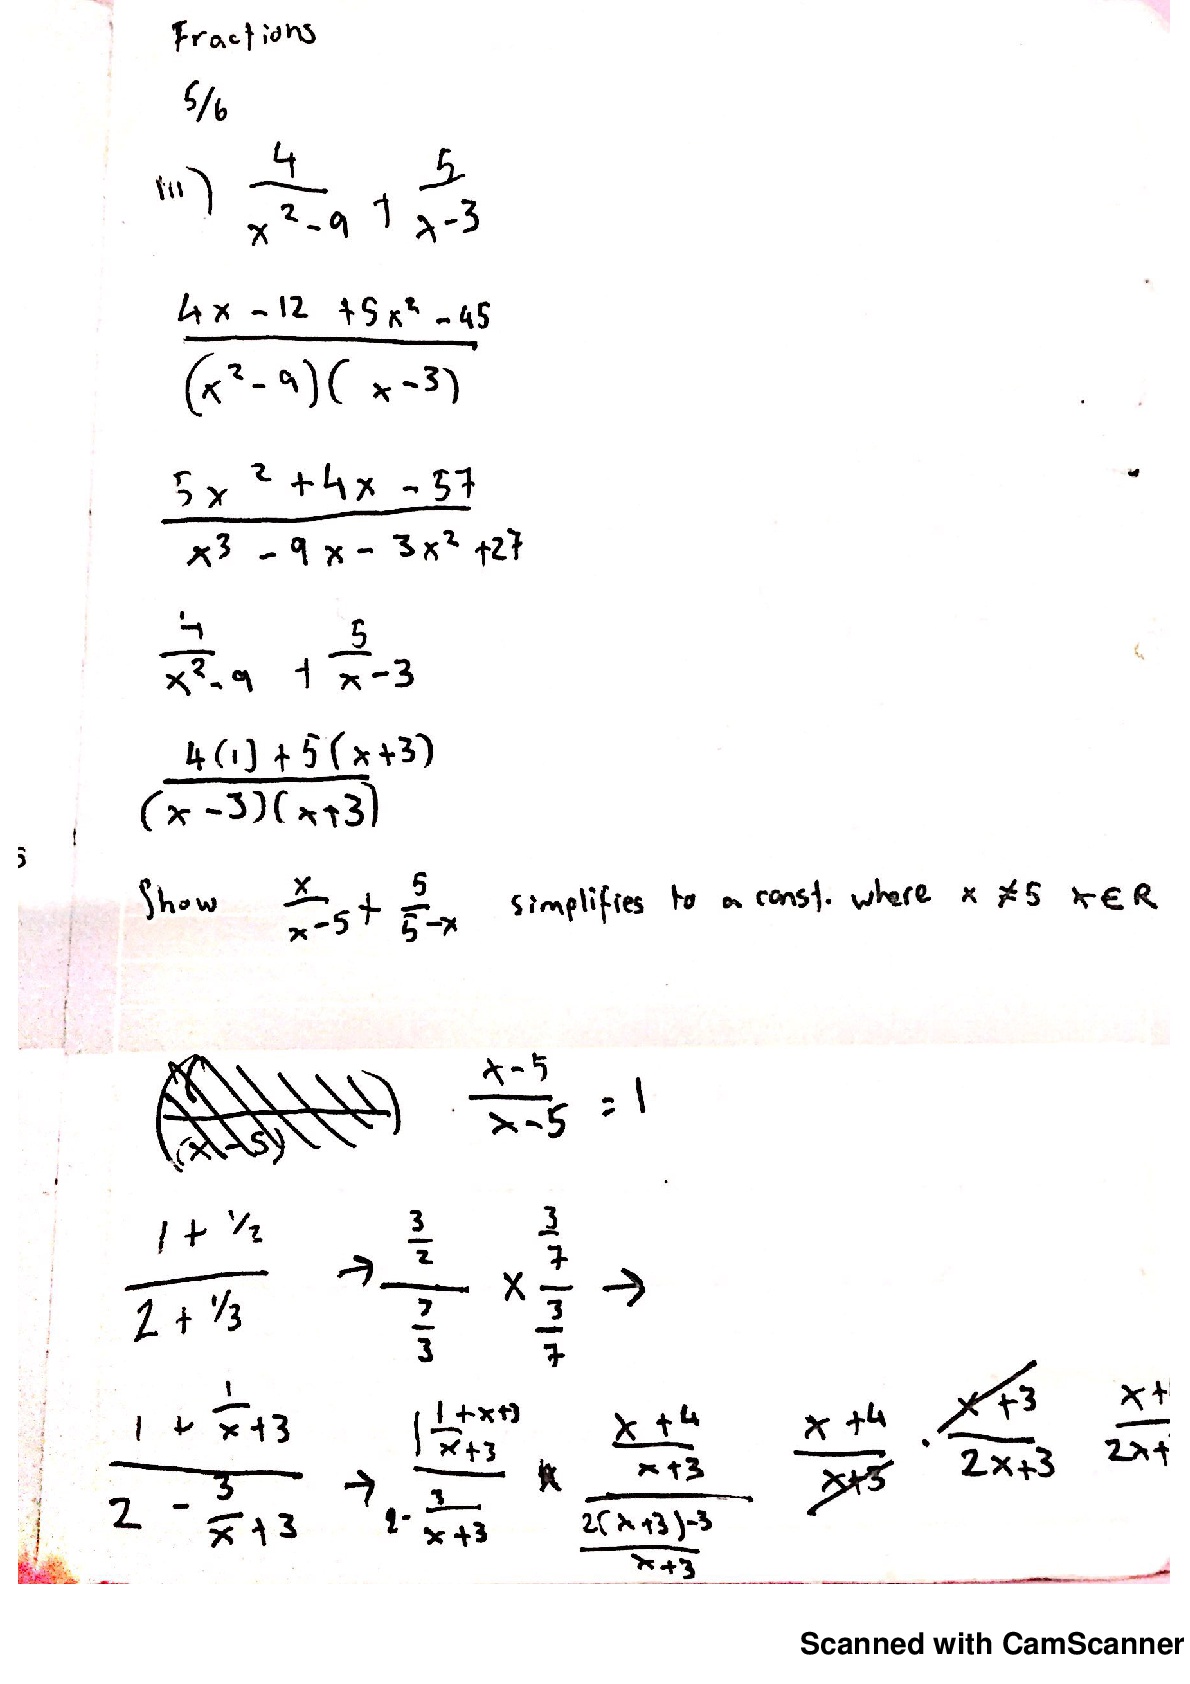 Fractions
5/6
iii) 4/(x² - 9) + 5/(x - 3)
(4x - 12 + 5x² - 45)/((x² - 9)(x - 3))
(5x² + 4x - 57)/(x³ - 9x - 3x² + 27)
4/(x² - 9) + 5/(x - 3)
(4(1) + 5(x+3))/((x - 3)(x+3))
Show x/(x-5) + 5/(5-x) simplifies to a const. where x ≠ 5 x ∈ R
(x-5)/(x-5) = 1
(1 + 1/2)/(2 + 1/3) → (3/2)/(7/3) × (3/7)/(3/7) →
(1 + 1/(x+3))/(2 - 3/(x+3)) → ((1+x+3)/(x+3))/(2- 3/(x+3)) ((x+4)/(x+3))/((2(x+3)-3)/(x+3)) (x+4)/(x+3) · (x+3)/(2x+3) (x+)/(2x+)
Scanned with CamScanner